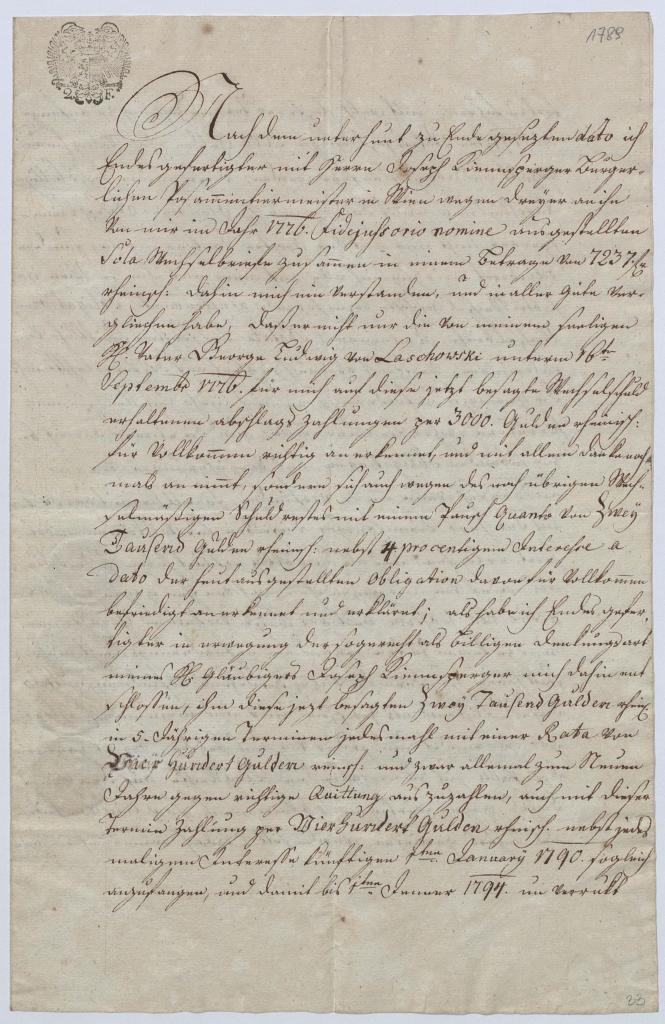 1789
2 F.
Nachdem unterhunt zu Ende gesezten dato ich
Endesgefertigter mit Herrn Joseph Kiennsperger Bürger-
lichen Posammentiermeister in Wien wegen dreyer an ihn
von mir im Jahr 1776. Fidejussorio nomine ausgestellten
Sola Wechselbriefe zusammen in einem Betrage von 7237 f
rheinisch: dahin mich ein verstanden, und in aller Güte ver-
gliechen habe, daß er nicht nur die von meinem seeligen
H. Vater George Ludwig von Laschowski unterm 16ten
Septembr 1776. für mich auf diese jetzt besagte Wechselschuld
erhaltenen abschlags Zahlungen per 3000. Gulden rheinisch:
für vollkommen richtig anerkennet, und mit allem Danke noch
mals annimmt, sondern sich auch wegen des noch übrigen Wech-
selmäßigen Schuldrestes mit einem Pausch Quanto von Zwey
Tausend Gulden rheinisch: nebst 4 procentigem Interesse a
dato der heut ausgestellten Obligation davon für vollkommen
befriedigt anerkennet und erkläret; als habe ich Endes gefer-
tigter in erwegung der so gerecht als billigen Denkungsart
meines H. Gläubigers Joseph Kiennsperger mich dahin ent
schlossen, ihm diese jezt besagten Zwey Tausend Gulden rheinisch:
in 5. Jährigen Terminen jedesmahl mit einer Rata von
Vier Hundert Gulden reinisch: und zwar allemal zum Neuen
Jahre gegen richtige Quittung auszuzahlen, auch mit dieser
Termin Zahlung per Vier Hundert Gulden rheinisch. nebst jedes
maligem Interesse künftigen 1ten January 1790. sogleich
anzufangen, und damit bis 1ten Jenner 1794. un verrükt
23